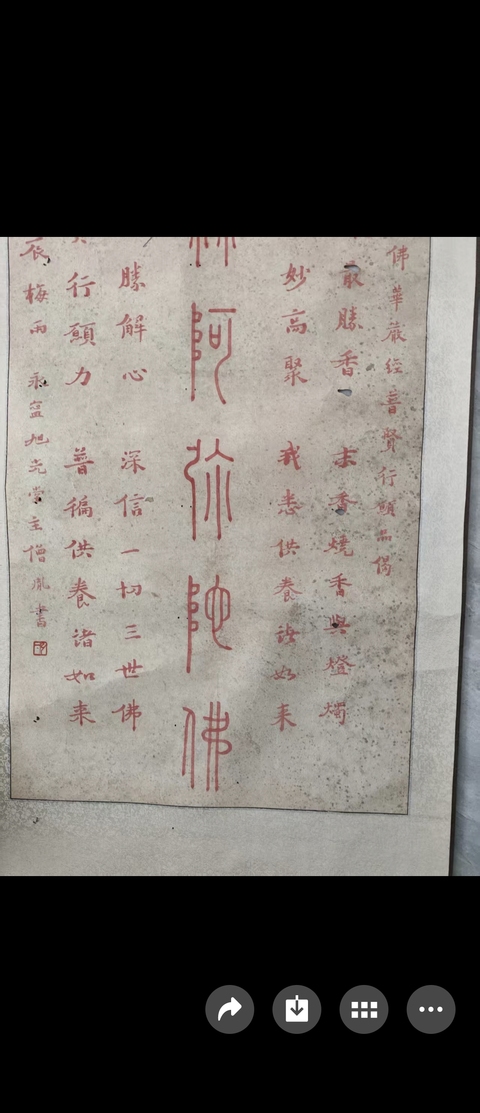 佛華嚴經普賢行願品偈
最勝香 末香燒香與燈燭
妙高聚 我悉供養諸如来
阿弥陀佛
勝解心 深信一切三世佛
行願力 普徧供養諸如来
梅雨 旭光堂主僧胤書